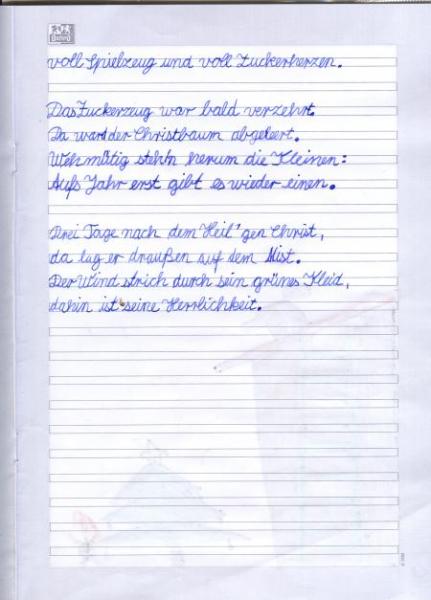 voll Spielzeug und voll Zuckerherzen.
Das Zuckerzeug war bald verzehrt.
Da ward der Christbaum abgeleert.
Wehmütig stehn herum die Kleinen:
Aufs Jahr erst gibt es wieder einen.
Drei Tage nach dem Heil'gen Christ,
da lag er draußen auf dem Mist.
Der Wind strich durch sein grünes Kleid,
dahin ist seine Herrlichkeit.